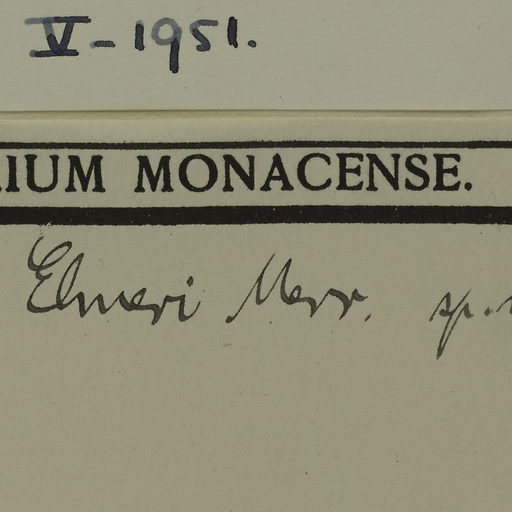 V-1951.
RIUM MONACENSE.
Elmeri Merr. sp.